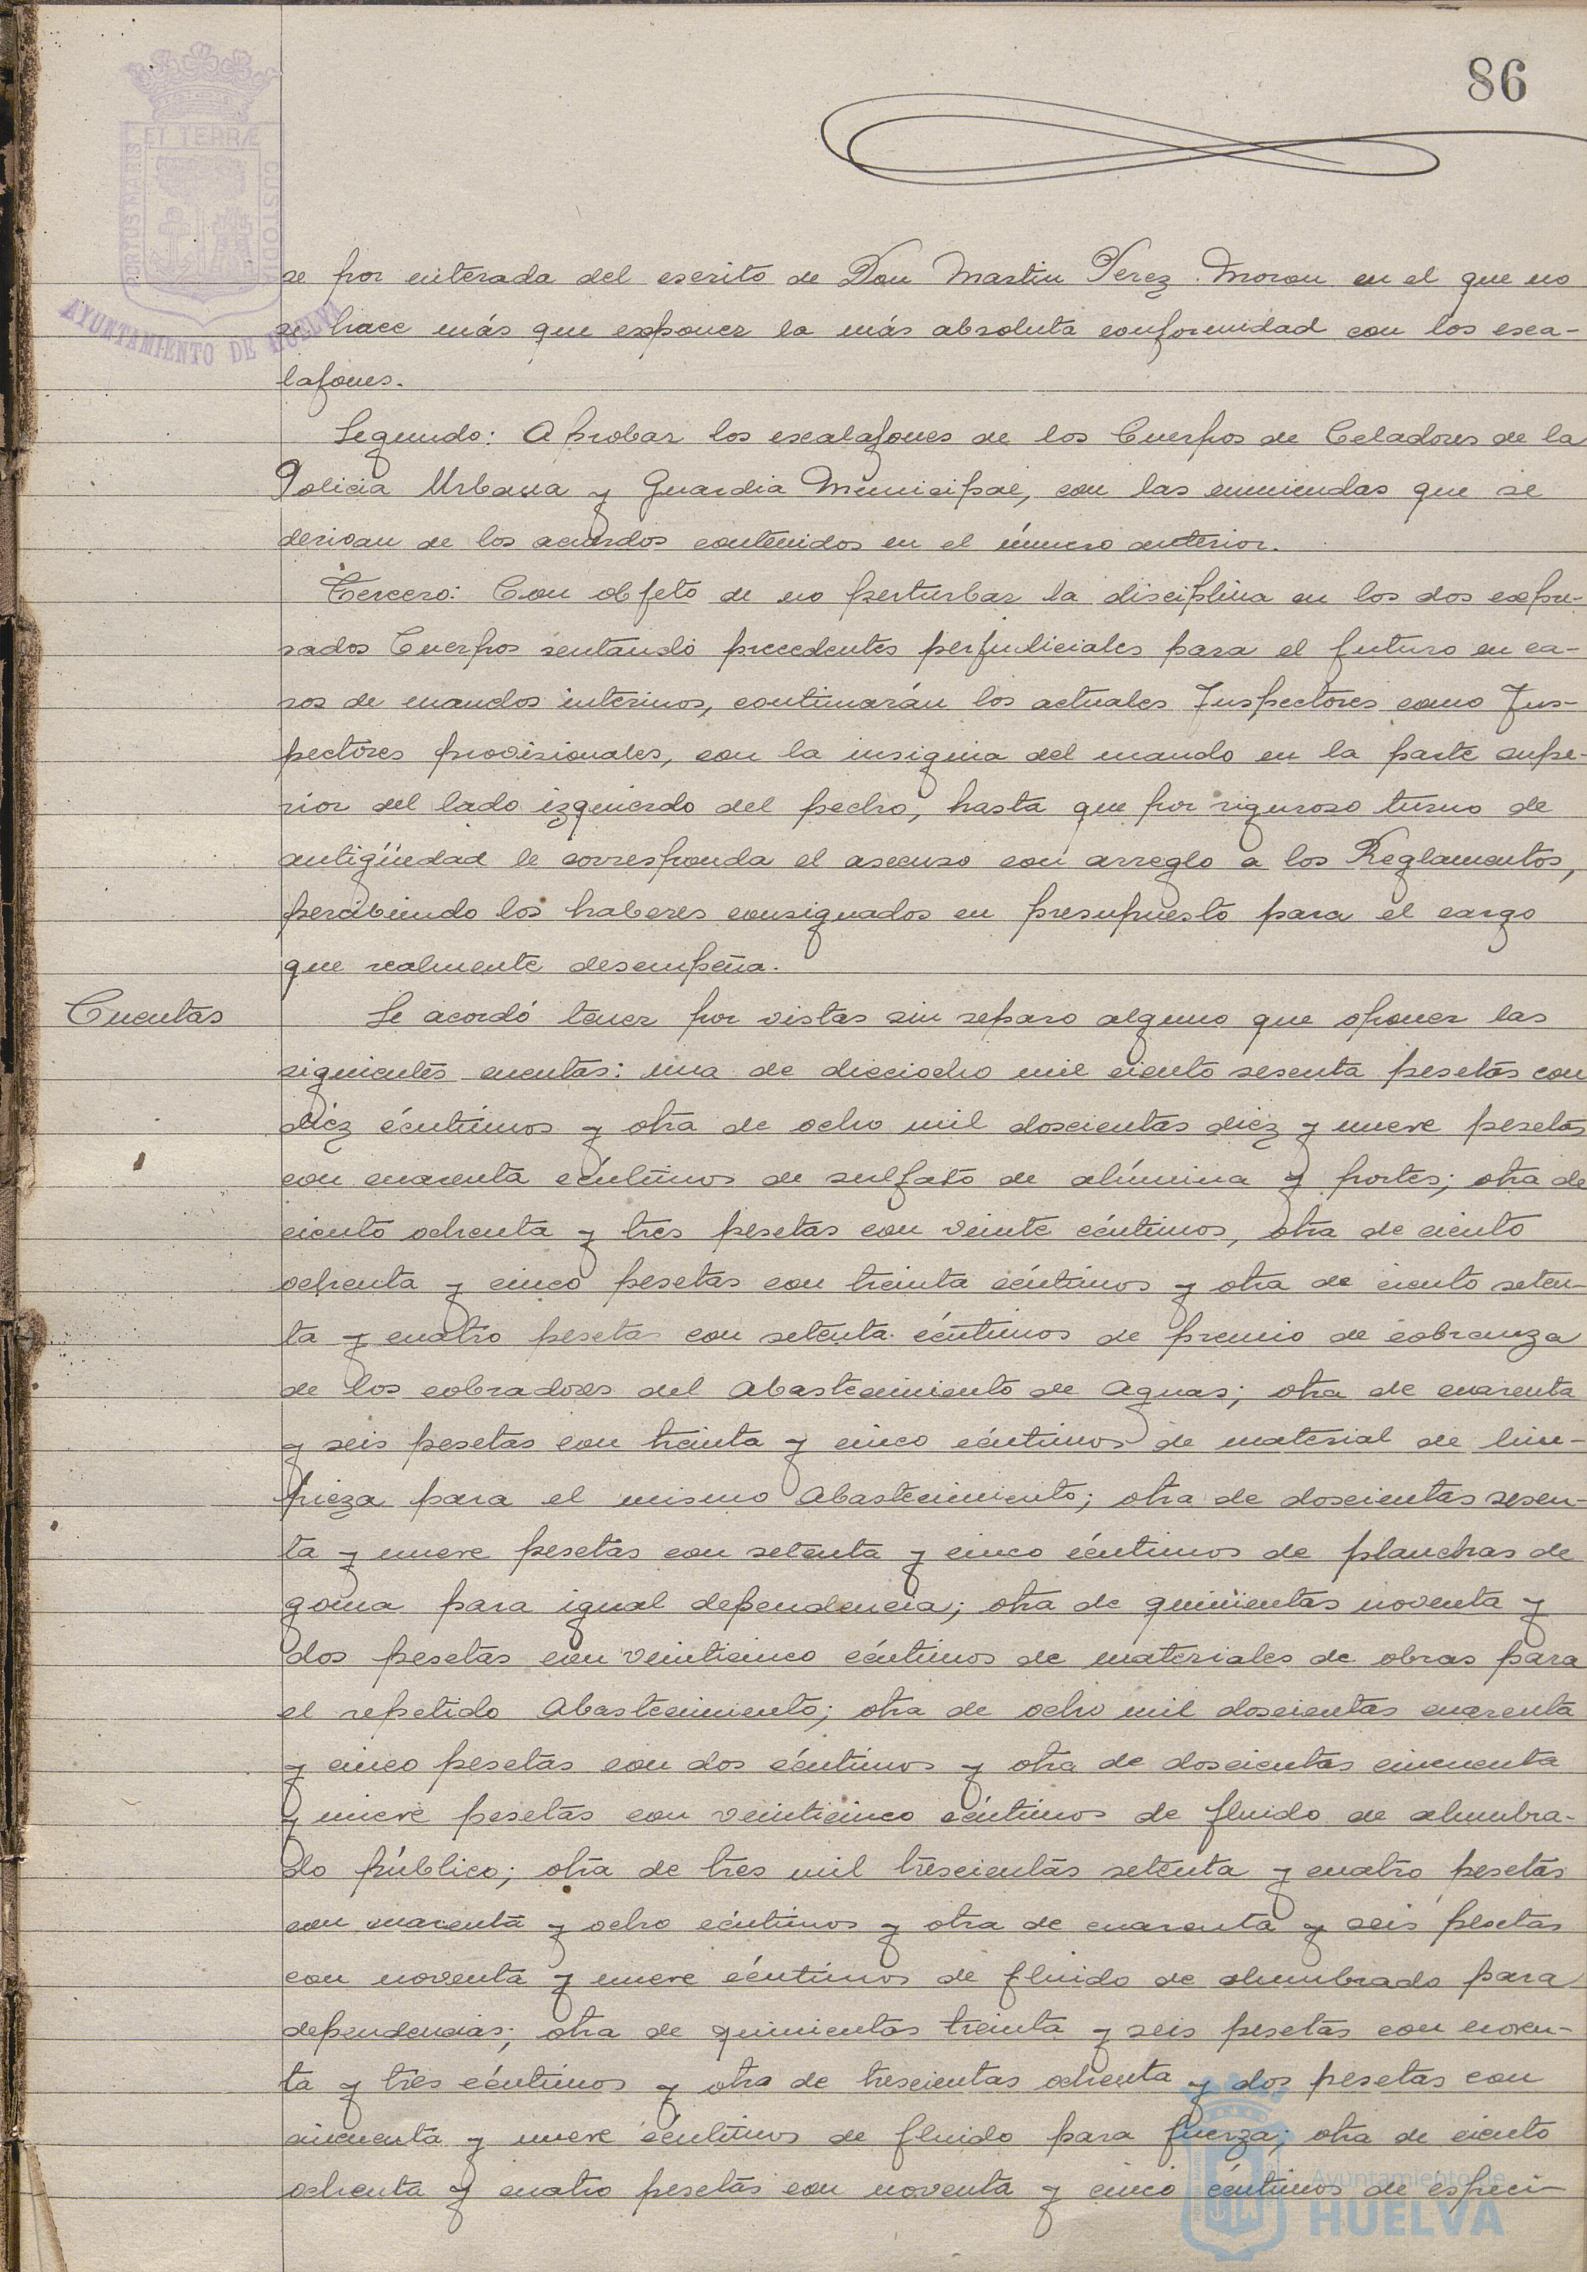 86
ET TERRÆ
PORTUS MARIS
CUSTODIA
AYUNTAMIENTO DE HUELVA
se por enterada del escrito de Don Martin Perez Moron en el que no
se hace más que exponer la más absoluta conformidad con los esca-
lafones.
Segundo: Aprobar los escalafones de los Cuerpos de Celadores de la
Policia Urbana y Guardia Municipal, con las enmiendas que se
derivan de los acuerdos contenidos en el número anterior.
Tercero: Con objeto de no perturbar la disciplina en los dos expre-
sados Cuerpos sentando precedentes perjudiciales para el futuro en ca-
sos de mandos interinos, continuarán los actuales Inspectores como Ins-
pectores provisionales, con la insignia del mando en la parte supe-
rior del lado izquierdo del pecho, hasta que por riguroso turno de
antigüedad le corresponda el ascenso con arreglo a los Reglamentos,
percibiendo los haberes consignados en presupuesto para el cargo
que realmente desempeña.
Cuentas
Se acordó tener por vistas sin reparo alguno que oponer las
siguientes cuentas: una de dieciocho mil ciento sesenta pesetas con
diez céntimos y otra de ocho mil doscientas diez y nueve pesetas
con cuarenta céntimos de sulfato de alúmina y portes; otra de
ciento ochenta y tres pesetas con veinte céntimos, otra de ciento
ochenta y cinco pesetas con treinta céntimos y otra de ciento seten-
ta y cuatro pesetas con setenta céntimos de premio de cobranza
de los cobradores del Abastecimiento de Aguas; otra de cuarenta
y seis pesetas con treinta y cinco céntimos de material de lim-
pieza para el mismo Abastecimiento; otra de doscientas sesen-
ta y nueve pesetas con setenta y cinco céntimos de planchas de
goma para igual dependencia; otra de quinientas noventa y
dos pesetas con veinticinco céntimos de materiales de obras para
el repetido Abastecimiento; otra de ocho mil doscientas cuarenta
y cinco pesetas con dos céntimos y otra de doscientas cincuenta
y nueve pesetas con veinticinco céntimos de fluido de alumbra-
do público; otra de tres mil trescientas setenta y cuatro pesetas
con cuarenta y ocho céntimos y otra de cuarenta y seis pesetas
con noventa y nueve céntimos de fluido de alumbrado para
dependencias; otra de quinientas treinta y seis pesetas con noven-
ta y tres céntimos y otra de trescientas ochenta y dos pesetas con
cincuenta y nueve céntimos de fluido para fuerza; otra de ciento
ochenta y cuatro pesetas con noventa y cinco céntimos de especi-
Ayuntamiento de
HUELVA